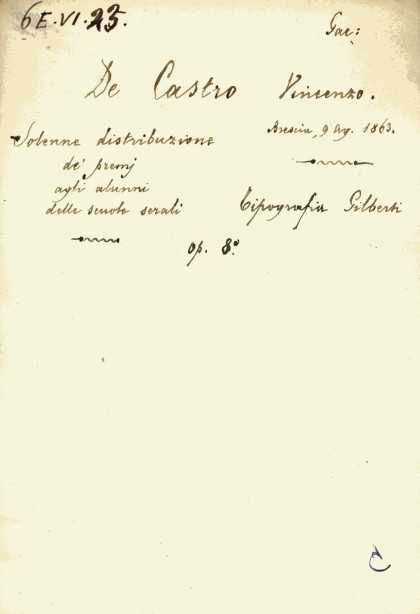 6E.VI.23.
Gac:
De Castro Vincenzo.
Solenne distribuzione
de' premj
agli alunni
delle scuole serali
Brescia, 9 Ag. 1863.
Tipografia Gilberti
op. 8º
C